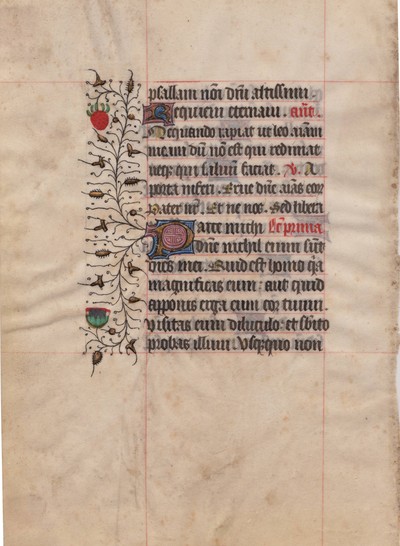 psallam nōi dn̄i altissimi
Requiem eternam. an̄t.
Nequando rapiat ut leo aīam
meam dū nō est qui redimat
neqȝ qui saluū faciat. V. A
porta inferi. Erue dn̄e aīas eor
Pater nr̄. Et ne nos. Sed libera
Parce michi lc̄ prima
dn̄e nichil enim sūt
dies mei. Quid est homo qa
magnificas eum: aut quid
apponis erga eum cor tuum.
Visitas eum diluculo: et sbito
probas illum. Vsqȝquo non